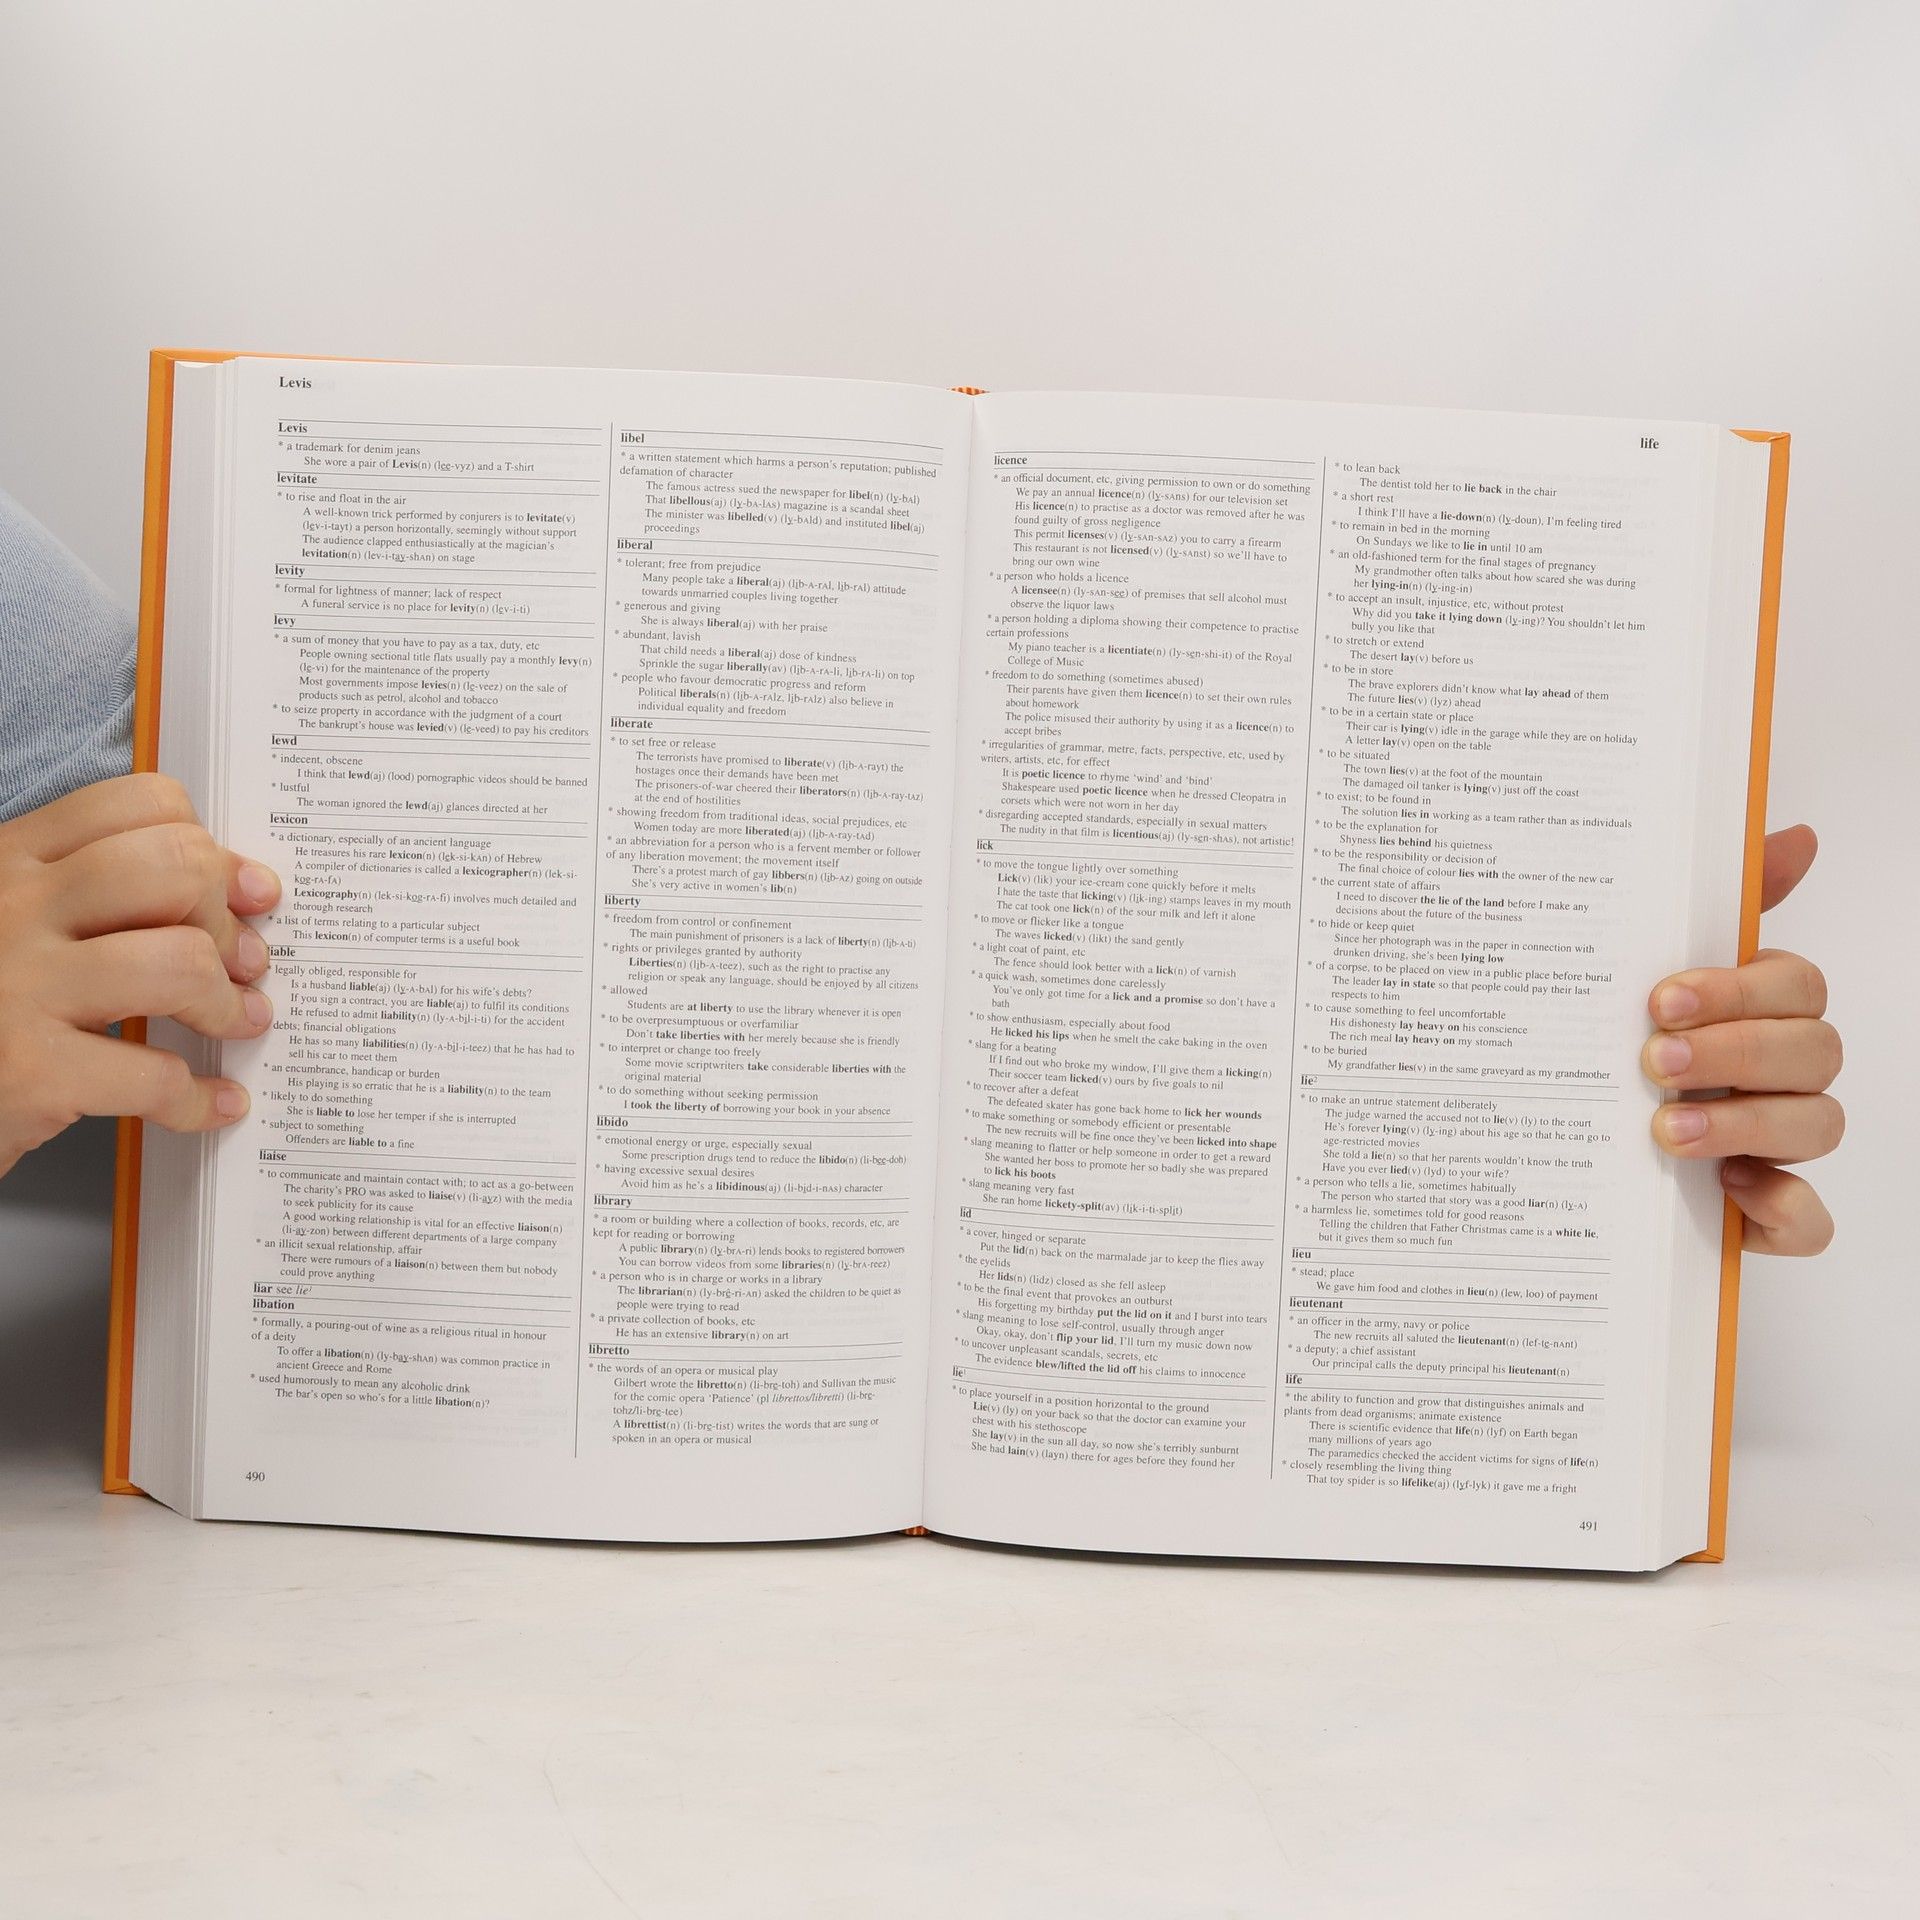 Levis
Levis
* a trademark for denim jeans
She wore a pair of Levis(n) (lee-vyz) and a T-shirt
levitate
* to rise and float in the air
A well-known trick performed by conjurers is to levitate(v)
(lev-i-tayt) a person horizontally, seemingly without support
The audience clapped enthusiastically at the magician's
levitation(n) (lev-i-tay-shAn) on stage
levity
* formal for lightness of manner; lack of respect
A funeral service is no place for levity(n) (lev-i-ti)
levy
* a sum of money that you have to pay as a tax, duty, etc
People owning sectional title flats usually pay a monthly levy(n)
(le-vi) for the maintenance of the property
Most governments impose levies(n) (le-veez) on the sale of
products such as petrol, alcohol and tobacco
* to seize property in accordance with the judgment of a court
The bankrupt's house was levied(v) (le-veed) to pay his creditors
lewd
* indecent, obscene
I think that lewd(aj) (lood) pornographic videos should be banned
* lustful
The woman ignored the lewd(aj) glances directed at her
lexicon
* a dictionary, especially of an ancient language
He treasures his rare lexicon(n) (lek-si-kAn) of Hebrew
A compiler of dictionaries is called a lexicographer(n) (lek-si-
kog-rA-fA)
Lexicography(n) (lek-si-kog-rA-fi) involves much detailed and
thorough research
* a list of terms relating to a particular subject
This lexicon(n) of computer terms is a useful book
liable
* legally obliged, responsible for
Is a husband liable(aj) (ly-A-bAl) for his wife's debts?
If you sign a contract, you are liable(aj) to fulfil its conditions
He refused to admit liability(n) (ly-A-bil-i-ti) for the accident
debts; financial obligations
He has so many liabilities(n) (ly-A-bil-i-teez) that he has had to
sell his car to meet them
* an encumbrance, handicap or burden
His playing is so erratic that he is a liability(n) to the team
* likely to do something
She is liable to lose her temper if she is interrupted
* subject to something
Offenders are liable to a fine
liaise
* to communicate and maintain contact with; to act as a go-between
The charity's PRO was asked to liaise(v) (li-ayz) with the media
to seek publicity for its cause
A good working relationship is vital for an effective liaison(n)
(li-ay-zon) between different departments of a large company
* an illicit sexual relationship, affair
There were rumours of a liaison(n) between them but nobody
could prove anything
liar see lie²
libation
* formally, a pouring-out of wine as a religious ritual in honour
of a deity
To offer a libation(n) (ly-bay-shAn) was common practice in
ancient Greece and Rome
* used humorously to mean any alcoholic drink
The bar's open so who's for a little libation(n)?
490
libel
* a written statement which harms a person's reputation; published
defamation of character
The famous actress sued the newspaper for libel(n) (ly-bAl)
That libellous(aj) (ly-bA-lAs) magazine is a scandal sheet
The minister was libelled(v) (ly-bAld) and instituted libel(aj)
proceedings
liberal
* tolerant; free from prejudice
Many people take a liberal(aj) (lib-A-rAl, lib-rAl) attitude
towards unmarried couples living together
* generous and giving
She is always liberal(aj) with her praise
* abundant, lavish
That child needs a liberal(aj) dose of kindness
Sprinkle the sugar liberally(av) (lib-A-rA-li, lib-rA-li) on top
* people who favour democratic progress and reform
Political liberals(n) (lib-A-rAlz, lib-rAlz) also believe in
individual equality and freedom
liberate
* to set free or release
The terrorists have promised to liberate(v) (lib-A-rayt) the
hostages once their demands have been met
The prisoners-of-war cheered their liberators(n) (lib-A-ray-tAz)
at the end of hostilities
* showing freedom from traditional ideas, social prejudices, etc
Women today are more liberated(aj) (lib-A-ray-tAd)
* an abbreviation for a person who is a fervent member or follower
of any liberation movement; the movement itself
There's a protest march of gay libbers(n) (lib-Az) going on outside
She's very active in women's lib(n)
liberty
* freedom from control or confinement
The main punishment of prisoners is a lack of liberty(n) (lib-A-ti)
* rights or privileges granted by authority
Liberties(n) (lib-A-teez), such as the right to practise any
religion or speak any language, should be enjoyed by all citizens
* allowed
Students are at liberty to use the library whenever it is open
* to be overpresumptuous or overfamiliar
Don't take liberties with her merely because she is friendly
* to interpret or change too freely
Some movie scriptwriters take considerable liberties with the
original material
* to do something without seeking permission
I took the liberty of borrowing your book in your absence
libido
* emotional energy or urge, especially sexual
Some prescription drugs tend to reduce the libido(n) (li-bee-doh)
* having excessive sexual desires
Avoid him as he's a libidinous(aj) (li-bid-i-nAs) character
library
* a room or building where a collection of books, records, etc, are
kept for reading or borrowing
A public library(n) (ly-brA-ri) lends books to registered borrowers
You can borrow videos from some libraries(n) (ly-brA-reez)
* a person who is in charge or works in a library
The librarian(n) (ly-brê-ri-An) asked the children to be quiet as
people were trying to read
* a private collection of books, etc
He has an extensive library(n) on art
libretto
* the words of an opera or musical play
Gilbert wrote the libretto(n) (li-bre-toh) and Sullivan the music
for the comic opera 'Patience' (pl librettos/libretti) (li-bre-
tohz/li-bre-tee)
A librettist(n) (li-bre-tist) writes the words that are sung or
spoken in an opera or musical
life
licence
* an official document, etc, giving permission to own or do something
We pay an annual licence(n) (ly-sAns) for our television set
His licence(n) to practise as a doctor was removed after he was
found guilty of gross negligence
This permit licenses(v) (ly-sAn-sAz) you to carry a firearm
This restaurant is not licensed(v) (ly-sAnst) so we'll have to
bring our own wine
* a person who holds a licence
A licensee(n) (ly-sAn-see) of premises that sell alcohol must
observe the liquor laws
* a person holding a diploma showing their competence to practise
certain professions
My piano teacher is a licentiate(n) (ly-sen-shi-it) of the Royal
College of Music
* freedom to do something (sometimes abused)
Their parents have given them licence(n) to set their own rules
about homework
The police misused their authority by using it as a licence(n) to
accept bribes
* irregularities of grammar, metre, facts, perspective, etc, used by
writers, artists, etc, for effect
It is poetic licence to rhyme 'wind' and 'bind'
Shakespeare used poetic licence when he dressed Cleopatra in
corsets which were not worn in her day
* disregarding accepted standards, especially in sexual matters
The nudity in that film is licentious(aj) (ly-sen-shAs), not artistic!
lick
* to move the tongue lightly over something
Lick(v) (lik) your ice-cream cone quickly before it melts
I hate the taste that licking(v) (lik-ing) stamps leaves in my mouth
The cat took one lick(n) of the sour milk and left it alone
* to move or flicker like a tongue
The waves licked(v) (likt) the sand gently
* a light coat of paint, etc
The fence should look better with a lick(n) of varnish
* a quick wash, sometimes done carelessly
You've only got time for a lick and a promise so don't have a
bath
* to show enthusiasm, especially about food
He licked his lips when he smelt the cake baking in the oven
* slang for a beating
If I find out who broke my window, I'll give them a licking(n)
Their soccer team licked(v) ours by five goals to nil
* to recover after a defeat
The defeated skater has gone back home to lick her wounds
* to make something or somebody efficient or presentable
The new recruits will be fine once they've been licked into shape
* slang meaning to flatter or help someone in order to get a reward
She wanted her boss to promote her so badly she was prepared
to lick his boots
* slang meaning very fast
She ran home lickety-split(av) (lik-i-ti-split)
lid
* a cover, hinged or separate
Put the lid(n) back on the marmalade jar to keep the flies away
* the eyelids
Her lids(n) (lidz) closed as she fell asleep
* to be the final event that provokes an outburst
His forgetting my birthday put the lid on it and I burst into tears
* slang meaning to lose self-control, usually through anger
Okay, okay, don't flip your lid, I'll turn my music down now
* to uncover unpleasant scandals, secrets, etc
The evidence blew/lifted the lid off his claims to innocence
lie¹
* to place yourself in a position horizontal to the ground
Lie(v) (ly) on your back so that the doctor can examine your
chest with his stethoscope
She lay(v) in the sun all day, so now she's terribly sunburnt
She had lain(v) (layn) there for ages before they found her
* to lean back
The dentist told her to lie back in the chair
* a short rest
I think I'll have a lie-down(n) (ly-doun), I'm feeling tired
* to remain in bed in the morning
On Sundays we like to lie in until 10 am
* an old-fashioned term for the final stages of pregnancy
My grandmother often talks about how scared she was during
her lying-in(n) (ly-ing-in)
* to accept an insult, injustice, etc, without protest
Why did you take it lying down (ly-ing)? You shouldn't let him
bully you like that
* to stretch or extend
The desert lay(v) before us
* to be in store
The brave explorers didn't know what lay ahead of them
The future lies(v) (lyz) ahead
* to be in a certain state or place
Their car is lying(v) idle in the garage while they are on holiday
A letter lay(v) open on the table
* to be situated
The town lies(v) at the foot of the mountain
The damaged oil tanker is lying(v) just off the coast
* to exist; to be found in
The solution lies in working as a team rather than as individuals
* to be the explanation for
Shyness lies behind his quietness
* to be the responsibility or decision of
The final choice of colour lies with the owner of the new car
* the current state of affairs
I need to discover the lie of the land before I make any
decisions about the future of the business
* to hide or keep quiet
Since her photograph was in the paper in connection with
drunken driving, she's been lying low
* of a corpse, to be placed on view in a public place before burial
The leader lay in state so that people could pay their last
respects to him
* to cause something to feel uncomfortable
His dishonesty lay heavy on his conscience
The rich meal lay heavy on my stomach
* to be buried
My grandfather lies(v) in the same graveyard as my grandmother
lie²
* to make an untrue statement deliberately
The judge warned the accused not to lie(v) (ly) to the court
He's forever lying(v) (ly-ing) about his age so that he can go to
age-restricted movies
She told a lie(n) so that her parents wouldn't know the truth
Have you ever lied(v) (lyd) to your wife?
* a person who tells a lie, sometimes habitually
The person who started that story was a good liar(n) (ly-A)
* a harmless lie, sometimes told for good reasons
Telling the children that Father Christmas came is a white lie,
but it gives them so much fun
lieu
* stead; place
We gave him food and clothes in lieu(n) (lew, loo) of payment
lieutenant
* an officer in the army, navy or police
The new recruits all saluted the lieutenant(n) (lef-te-nAnt)
* a deputy; a chief assistant
Our principal calls the deputy principal his lieutenant(n)
life
* the ability to function and grow that distinguishes animals and
plants from dead organisms; animate existence
There is scientific evidence that life(n) (lyf) on Earth began
many millions of years ago
The paramedics checked the accident victims for signs of life(n)
* closely resembling the living thing
That toy spider is so lifelike(aj) (lyf-lyk) it gave me a fright
491